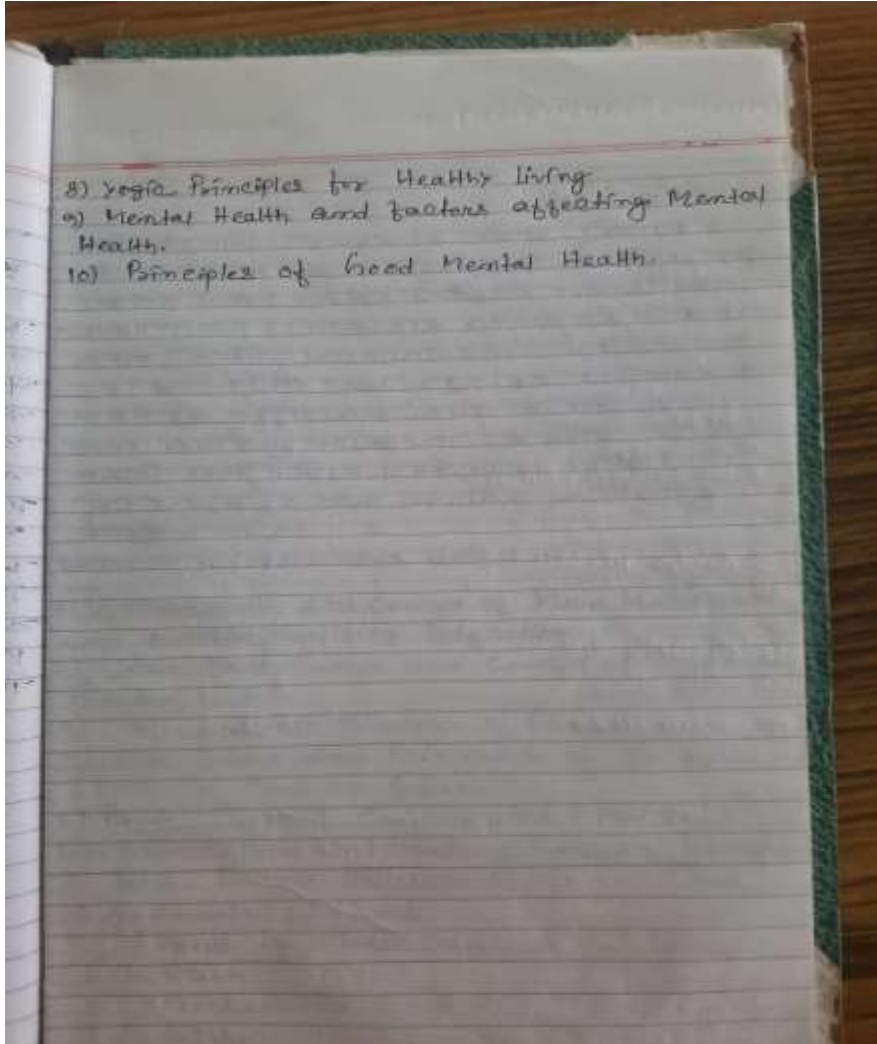 8) Yogic Principles for Healthy living
9) Mental Health and factors affecting Mental
Health.
10) Principles of Good Mental Health.